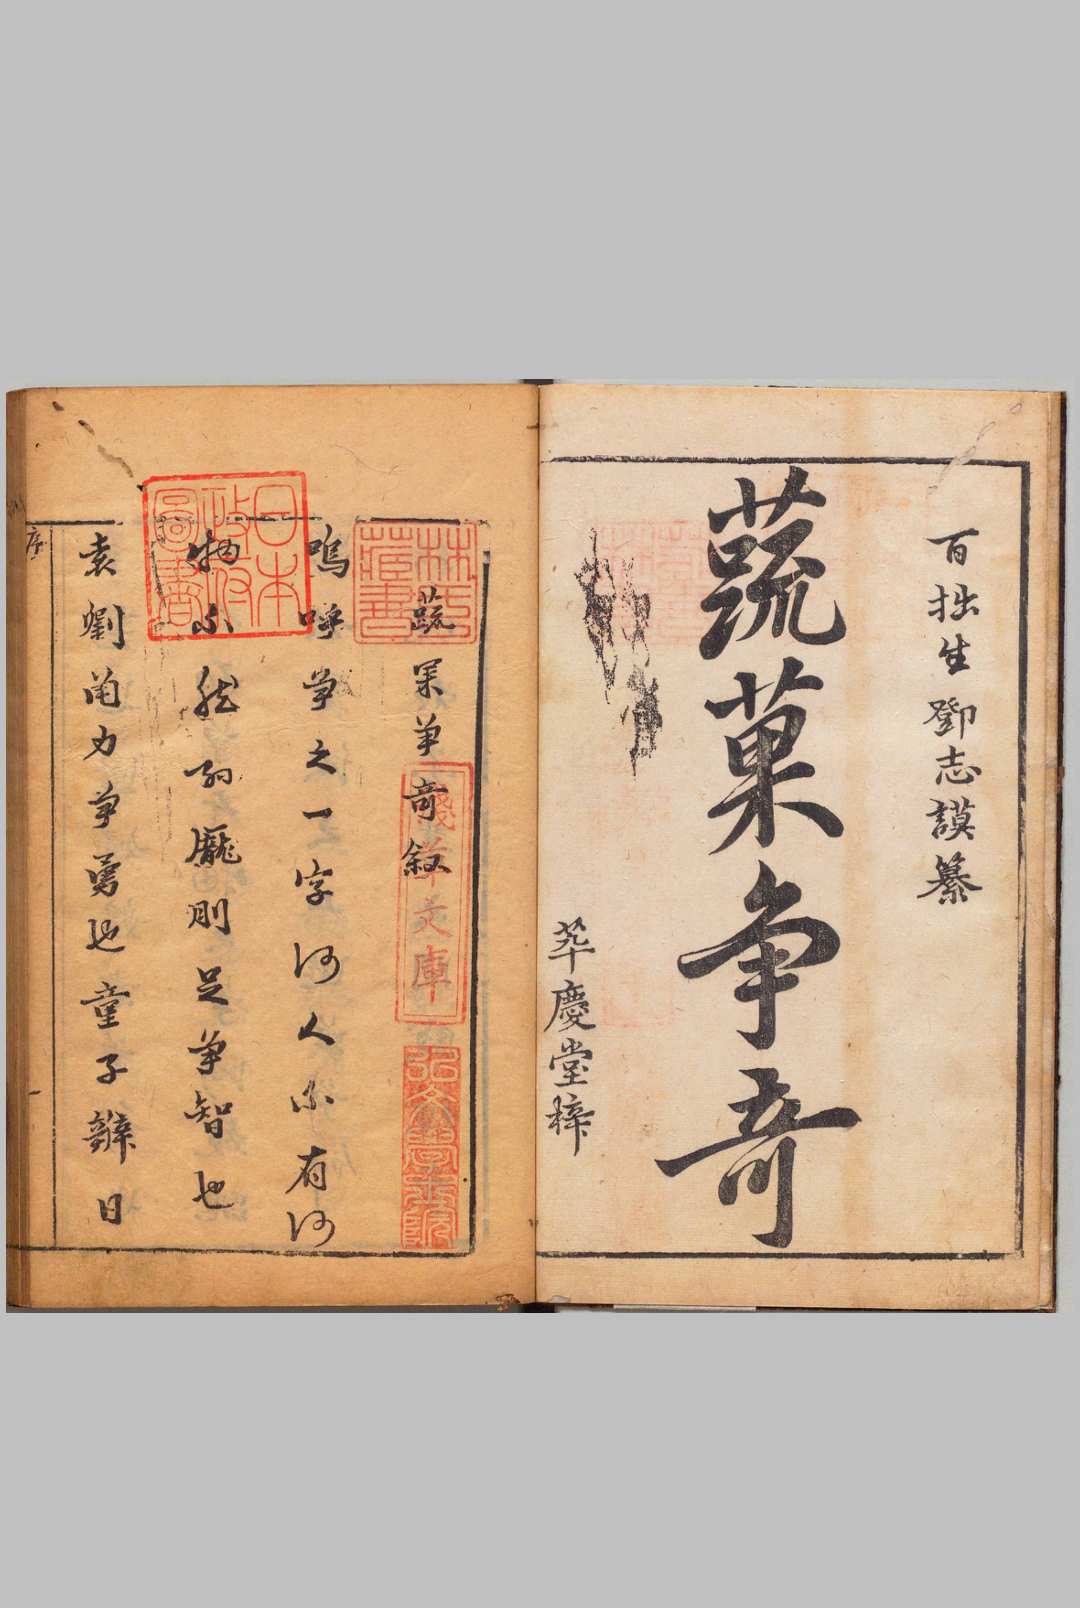 百拙生鄧志謨纂
蔬菓爭奇
萃慶堂梓
林氏藏書
蔬果爭奇叙
淺草文庫
弘文學士院
嗚呼爭之一字何人不有何
日本政府圖書
物不然孫龐刖足爭智也
袁劉角力爭勇也童子辯日
序